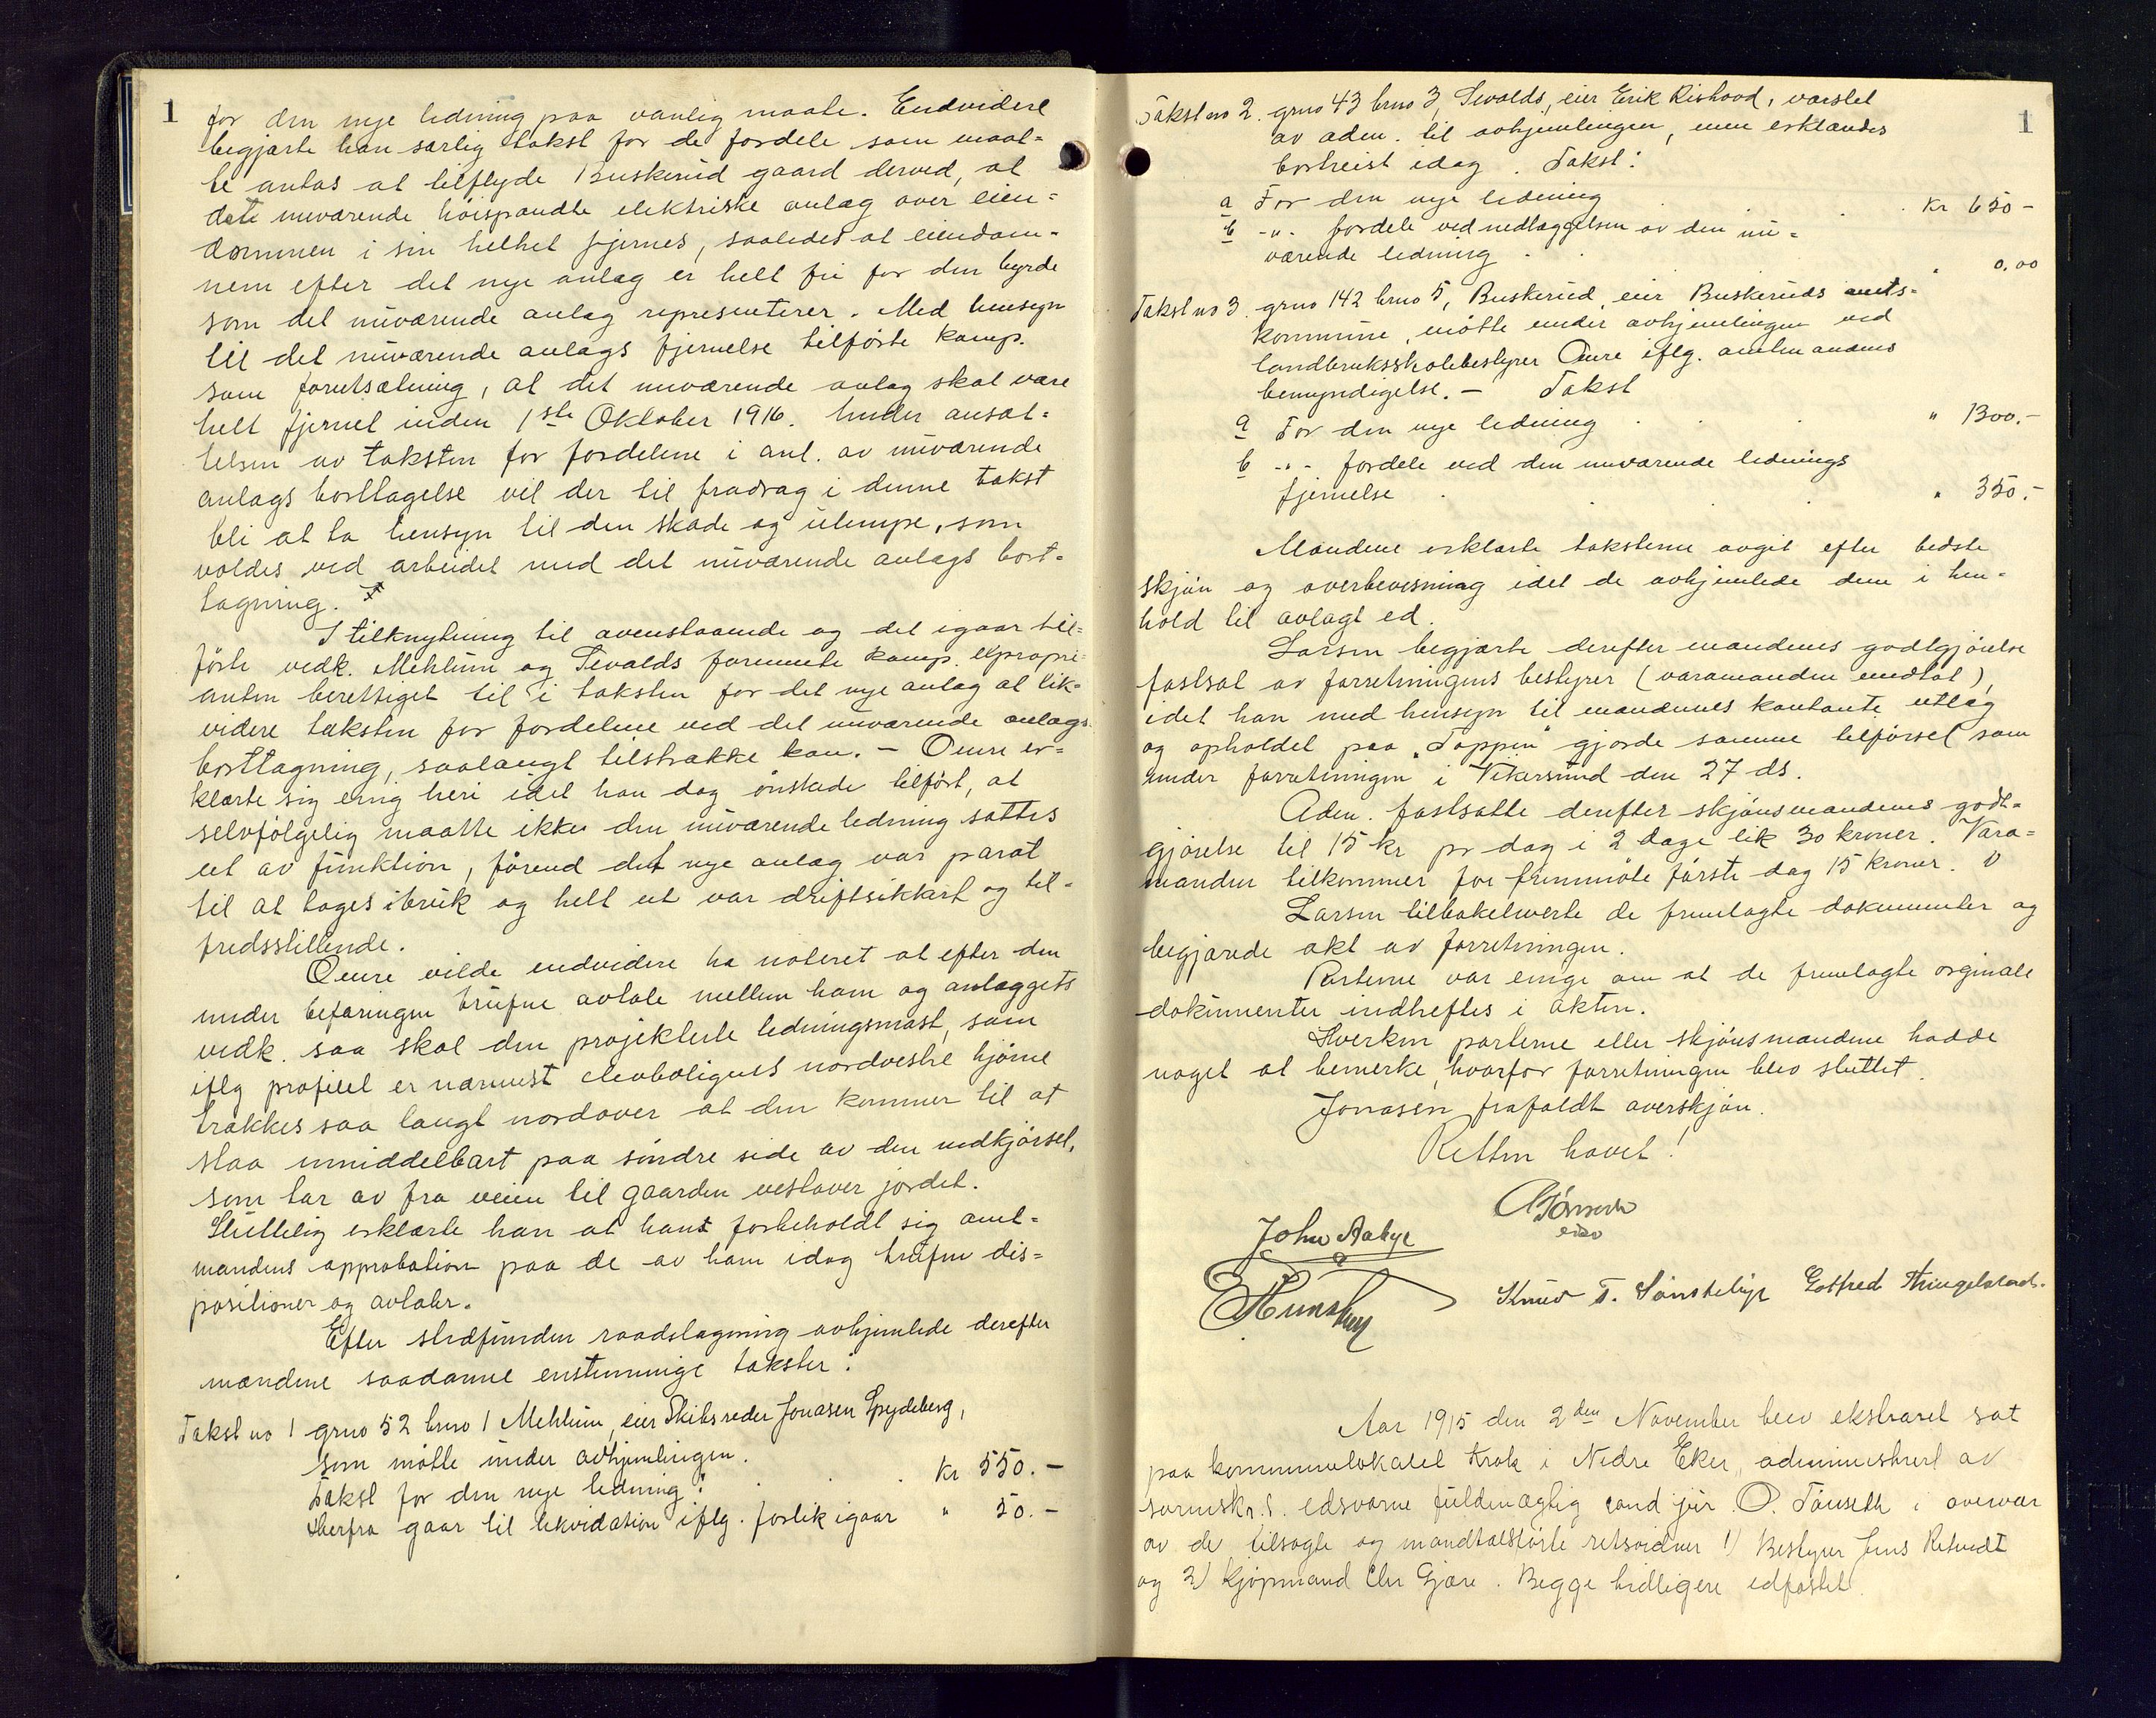 1
for den nye ledning paa vanlig maate. Endvidere
begjærte han særlig takst for de fordele som maat-
te antas at tilflyde Buskerud gaard derved, at
det nuværende høispændte elektriske anlæg over eien-
dommen i sin helhet fjernes, saaledes at eiendom-
nem efter det nye anlæg er helt fri for den byrde
som det nuværende anlæg representerer. Med hensyn
til det nuværende anlægs fjernelse tilførte komp.
som forutsætning, at det nuværende anlæg skal være
helt fjernet inden 1ste Oktober 1916. Under ansæt-
telsen av taksten for fordelene i anl. av nuværende
anlægs borttagelse vil der til fradrag i denne takst
bli at ta hensyn til den skade og ulempe, som
voldes ved arbeidet med det nuværende anlægs bort-
tagning.
I tilknytning til ovenstaaende og det igaar til-
førte vedk. Mehlum og Sevalds formente komp. expropri-
anten berettiget til i taksten for det nye anlæg at lik-
videre taksten for fordelene ved det nuværende anlægs
borttagning, saalangt tilstrække kan. – Omre er-
klærte sig enig heri idet han dog ønskede tilført, at
selvfølgelig maatte ikke den nuværende ledning sættes
ut av funktion, førend det nye anlæg var parat
til at tages ibruk og helt ut var driftsikkert og til-
fredsstillende.
Omre vilde endvidere ha noteret at efter den
under befaringen trufne avtale mellem ham og anlæggets
vedk. saa skal den projekterte ledningsmast, som
iflg profilet er nærmest elevboligens nordvestre hjørne
trækkes saa langt nordover at den kommer til at
staa umiddelbart paa søndre side av den nedkjørsel,
som tar av fra veien til gaarden vestover jordet.
Sluttelig erklærte han at hans forbeholdt sig amt-
mandens approbation paa de av ham idag trufne dis-
positioner og avtaler.
Efter stedfunden raadslagning avhjemlede derefter
mændene saadanne enstemmige takster:
Takst no 1 grno 52 brno 1 Mehlum, eier Skibsreder Jonasen Spydeberg,
som møtte under avhjemlingen.
Takst for den nye ledning: Kr 550.–
Herfra gaar til likvidation iflg. forlik igaar " 50.–
1
Takst no 2. grno 43 brno 3, Sevalds, eier Erik Rishovd, varslet
av adm. til avhjemlingen, men erklændes
bortreist idag. Takst:
a For den nye ledning Kr 650–
b -"- fordele ved nedlæggelsen av den nu-
værende ledning " 0,00
Takst no 3. grno 142 brno 5, Buskerud, eier Buskeruds amts-
kommune, møtte under avhjemlingen ved
landbruksskolebestyrer Omre iflg. amtmandens
bemyndigelse. – Takst
a For den nye ledning " 1300.–
b -"- fordele ved den nuværende lednings
fjernelse " 350.–
Mændene erklærte taksterne avgit efter bedste
skjøn og overbevisning idet de avhjemlede dem i hen-
hold til avlagt ed.
Larsen begjærte derefter mændenes godtgjørelse
fastsat av forretningens bestyrer (varamanden medtat),
idet han med hensyn til mændenes kontante utlæg
og opholdet paa "Toppen" gjorde samme tilførsel som
under forretningen i Vikersund den 27 ds.
Adm. fastsatte derefter skjønsmændenes godt-
gjørelse til 15 kr pr dag i 2 dage lik 30 kroner. Vara-
manden tilkommer for fremmøte første dag 15 kroner.
Larsen tilbakeleverte de fremlagte dokumenter og
begjærede akt av forretningen.
Parterne var enige om at de fremlagte orginale
dokumenter indheftes i akten.
Hverken parterne eller skjønsmændene hadde
noget at bemerke, hvorfor forretningen blev sluttet.
Jonasen frafaldt overskjøn.
Retten hævet!
John Aabye
Knud T. Sønstebye Gotfred Thingelstad.
Aar 1915 den 2den November blev ekstraret sat
paa kommunelokalet Krok i Nedre Eker, administrert av
sorenskr.s. edsvorne fuldmægtig cand jur. O. Tønseth i overvær
av de tilsagte og mandtalsførte retsvidner 1) Bestyrer Jens Retvedt
og 2) Kjøpmand Chr Gjære. Begge tidligere edfæstet.